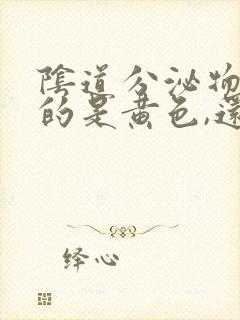 陰道分泌物
的是黄色,還
绎心